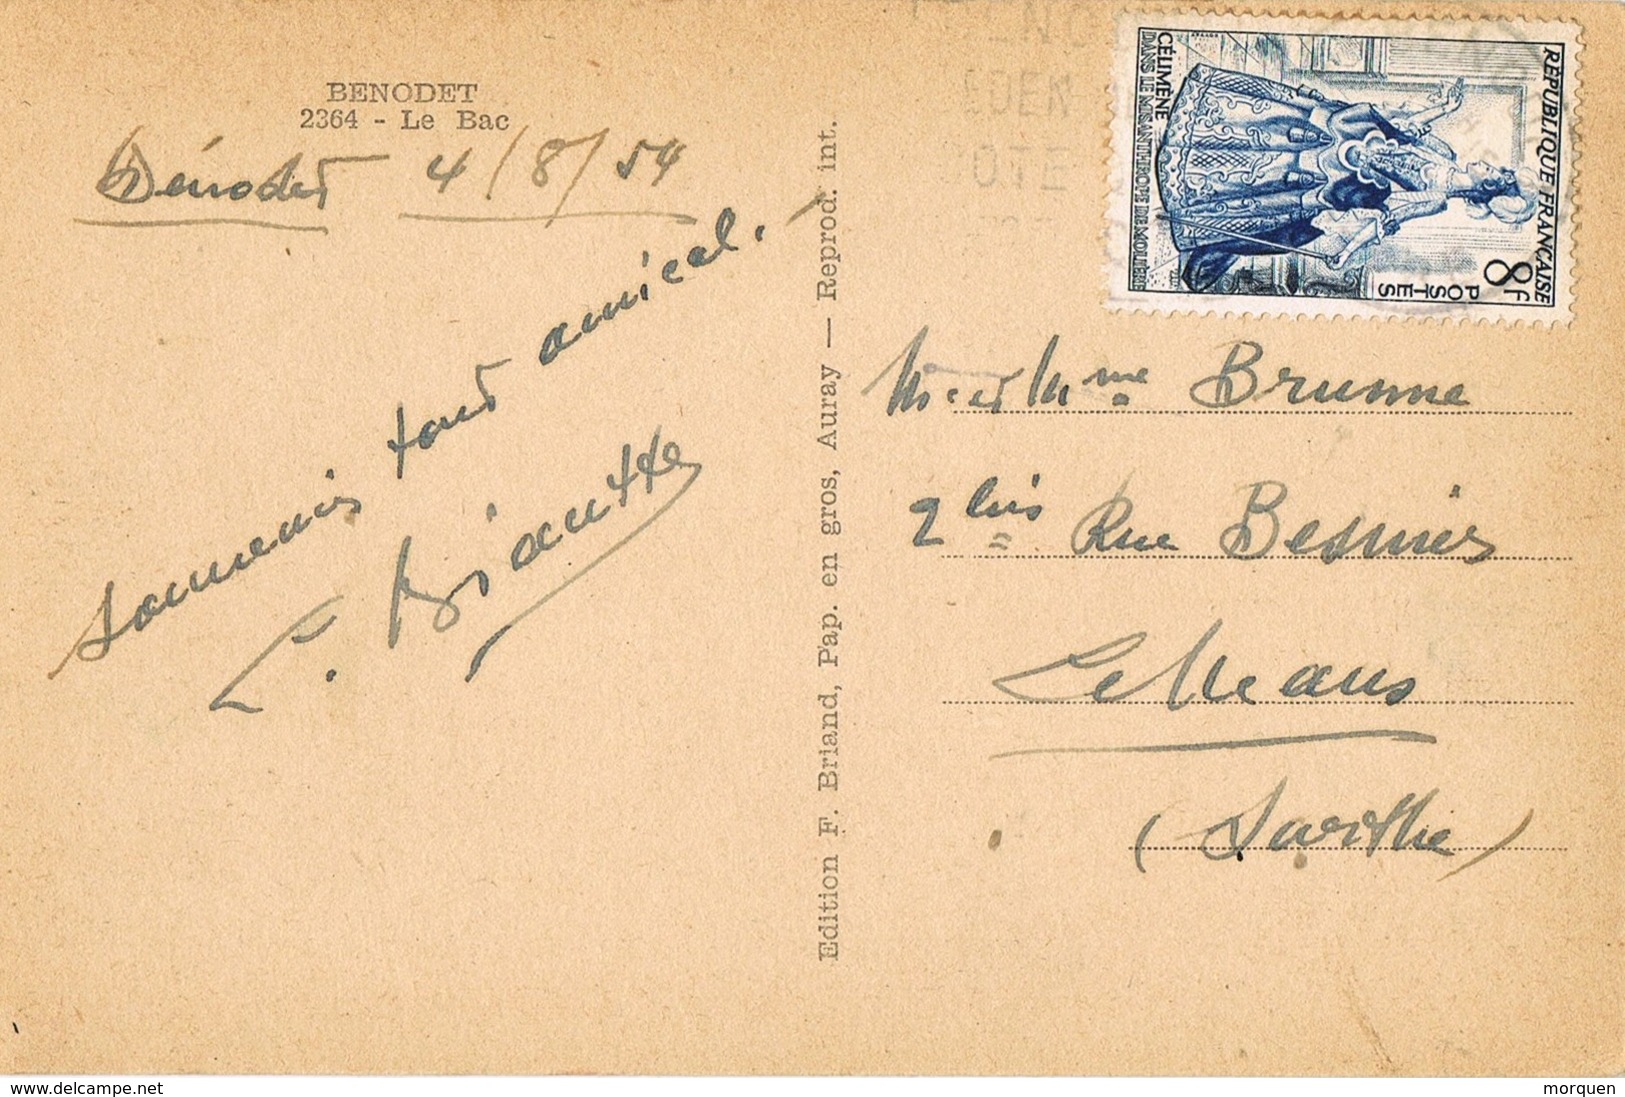 BENODET
2364 - Le Bac
Bénodet 4/8/54
Souvenirs tout amical.
Edition F. Briand, Pap. en gros, Auray — Reprod. int.
RÉPUBLIQUE FRANÇAISE
8f
POSTES
CÉLIMÈNE
DANS LE MISANTHROPE DE MOLIÈRE
EDEN
OTE
M. et Mme Brunne
2 bis Rue Besnier
Le Mans
(Sarthe)
www.delcampe.net
morquen